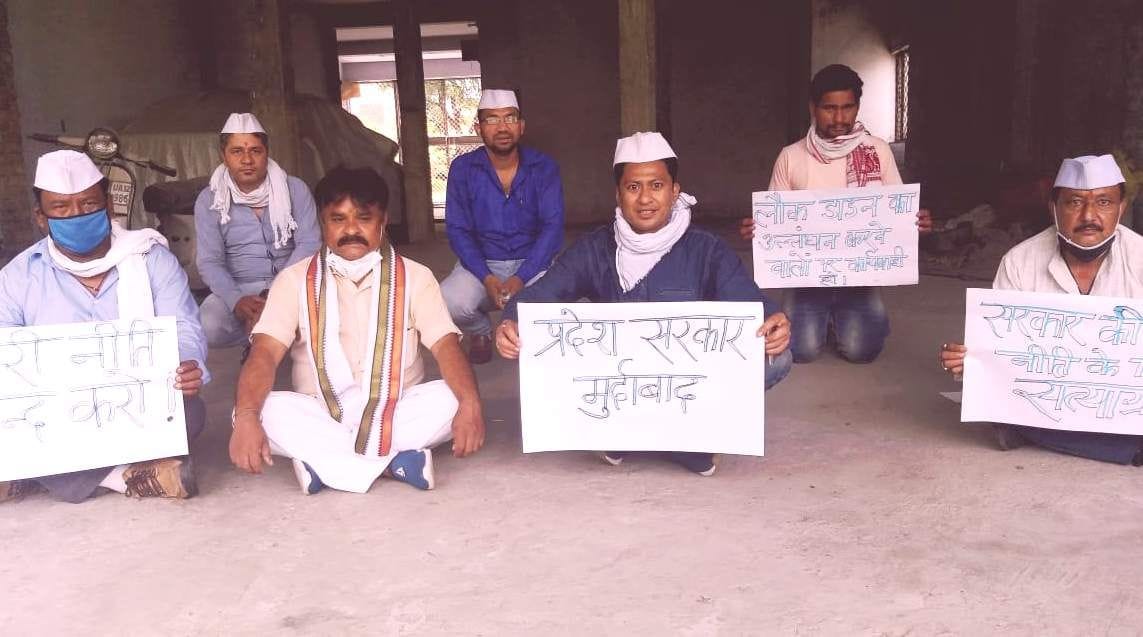 री नीति
न्द करो !
प्रदेश सरकार
मुर्दाबाद
लौक डाउन का
उल्लंघन करने
वालों पर कार्यवाही
हो।
सरकार की
नीति के
सत्याग्र